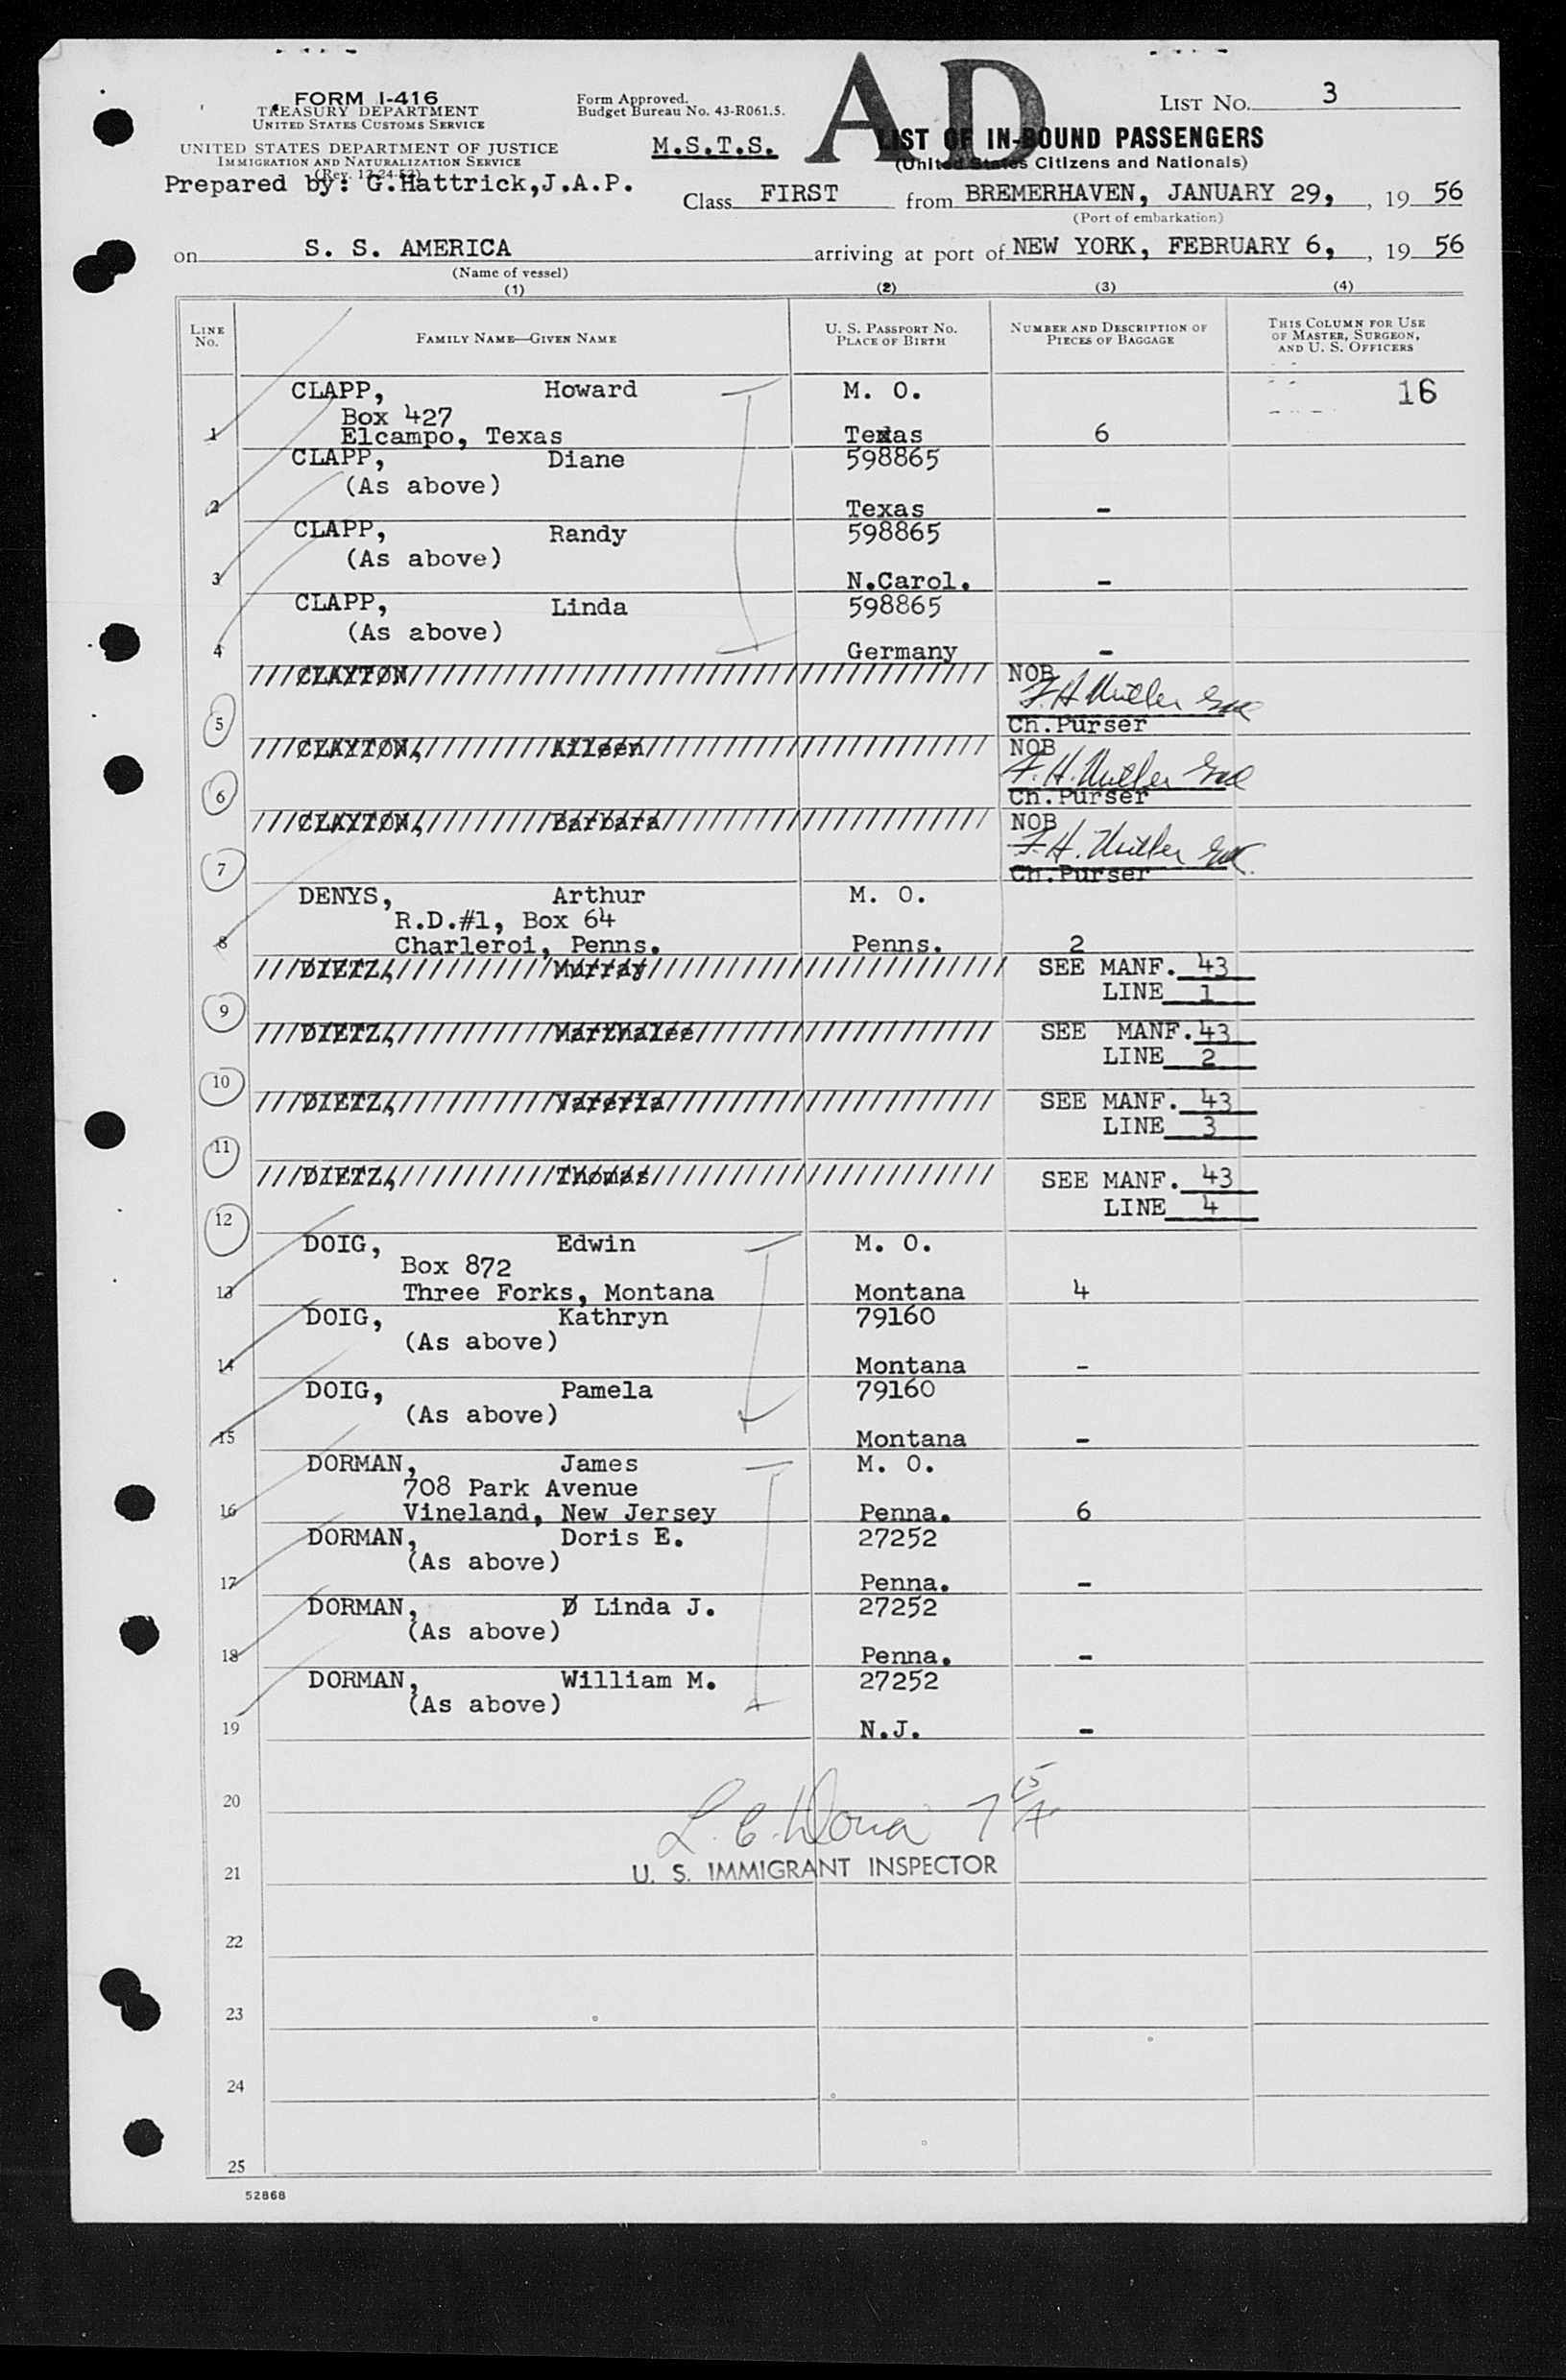 FORM I-416
TREASURY DEPARTMENT
UNITED STATES CUSTOMS SERVICE
UNITED STATES DEPARTMENT OF JUSTICE
IMMIGRATION AND NATURALIZATION SERVICE
(Rev. 12-24-52)
Prepared by: G.Hattrick,J.A.P.
Form Approved.
Budget Bureau No. 43-R061.5.
M.S.T.S.
AD
LIST No. 3
LIST OF IN-BOUND PASSENGERS
(United States Citizens and Nationals)
Class FIRST from BREMERHAVEN, JANUARY 29, , 19 56
(Port of embarkation)
on S. S. AMERICA arriving at port of NEW YORK, FEBRUARY 6, , 19 56
(Name of vessel)
(1) (2) (3) (4)
LINE No. FAMILY NAME—GIVEN NAME U. S. PASSPORT NO. PLACE OF BIRTH NUMBER AND DESCRIPTION OF PIECES OF BAGGAGE THIS COLUMN FOR USE OF MASTER, SURGEON, AND U. S. OFFICERS
CLAPP, Howard M. O. 16
Box 427
1 Elcampo, Texas Texas 6
CLAPP, Diane 598865
(As above)
2 Texas -
CLAPP, Randy 598865
(As above)
3 N.Carol. -
CLAPP, Linda 598865
(As above)
4 Germany -
///CLAYTON//////////////////////////////////// NOB
5 Ch.Purser
///CLAYTON,/////////Aileen////////////////////// NOB
6 Ch.Purser
///CLAYTON,/////////Barbara///////////////////// NOB
7 Ch.Purser
DENYS, Arthur M. O.
R.D.#1, Box 64
8 Charleroi, Penns. Penns. 2
///DIETZ,///////////Murray/////////////////////// SEE MANF. 43
9 LINE 1
///DIETZ,///////////Marthalee/////////////////// SEE MANF. 43
10 LINE 2
///DIETZ,///////////Vareria///////////////////// SEE MANF. 43
11 LINE 3
///DIETZ,///////////Thomas////////////////////// SEE MANF. 43
12 LINE 4
DOIG, Edwin M. O.
Box 872
13 Three Forks, Montana Montana 4
DOIG, Kathryn 79160
(As above)
14 Montana -
DOIG, Pamela 79160
(As above)
15 Montana -
DORMAN, James M. O.
708 Park Avenue
16 Vineland, New Jersey Penna. 6
DORMAN, Doris E. 27252
(As above)
17 Penna. -
DORMAN, D Linda J. 27252
(As above)
18 Penna. -
DORMAN, William M. 27252
(As above)
19 N.J. -
20
21 U. S. IMMIGRANT INSPECTOR
22
23
24
25
52868